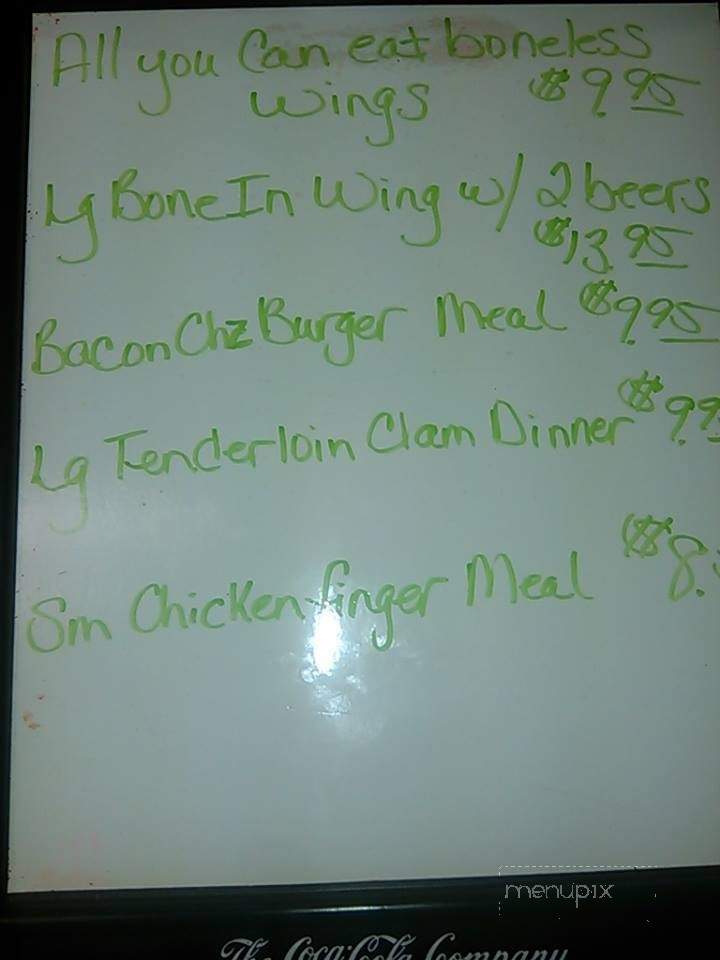 All you can eat boneless
wings $9.95
Lg Bone In Wing w/ 2 beers
$13.95
Bacon Chz Burger Meal $9.95
Lg Tenderloin Clam Dinner $9.9
Sm Chicken finger Meal $8.
menupix
The Coca-Cola Company